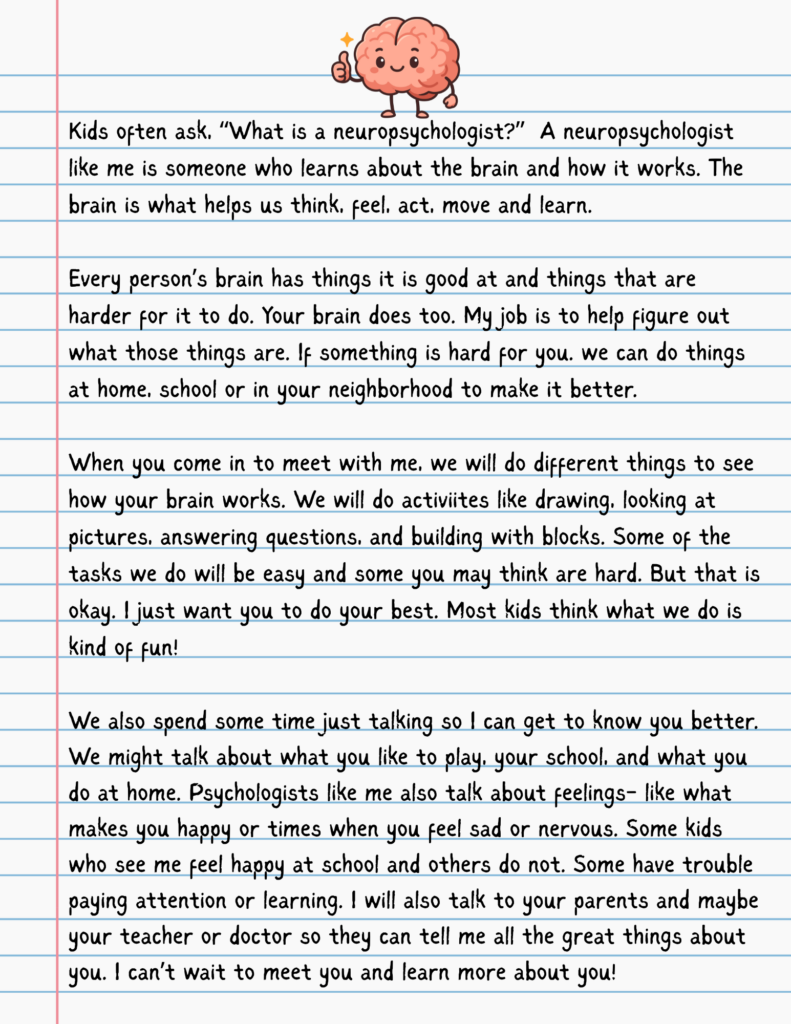 Kids often ask, “What is a neuropsychologist?”  A neuropsychologist
like me is someone who learns about the brain and how it works. The
brain is what helps us think, feel, act, move and learn.
Every person’s brain has things it is good at and things that are
harder for it to do. Your brain does too. My job is to help figure out
what those things are. If something is hard for you, we can do things
at home, school or in your neighborhood to make it better.
When you come in to meet with me, we will do different things to see
how your brain works. We will do activiites like drawing, looking at
pictures, answering questions, and building with blocks. Some of the
tasks we do will be easy and some you may think are hard. But that is
okay. I just want you to do your best. Most kids think what we do is
kind of fun!
We also spend some time just talking so I can get to know you better.
We might talk about what you like to play, your school, and what you
do at home. Psychologists like me also talk about feelings– like what
makes you happy or times when you feel sad or nervous. Some kids
who see me feel happy at school and others do not. Some have trouble
paying attention or learning. I will also talk to your parents and maybe
your teacher or doctor so they can tell me all the great things about
you. I can’t wait to meet you and learn more about you!